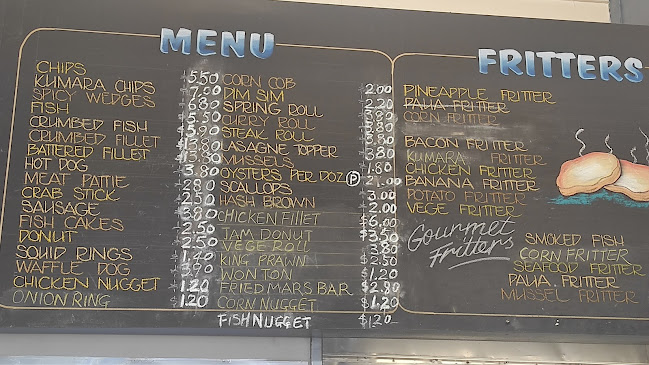 MENU
CHIPS
KUMARA CHIPS
SPICY WEDGES
FISH
CRUMBED FISH
CRUMBED FILLET
BATTERED FILLET
HOT DOG
MEAT PATTIE
CRAB STICK
SAUSAGE
FISH CAKES
DONUT
SQUID RINGS
WAFFLE DOG
CHICKEN NUGGET
ONION RING
5.50
7.00
6.80
5.50
5.90
3.80
2.80
2.50
3.80
2.50
2.50
1.40
3.90
1.20
$1.20
CORN COB
DIM SIM
SPRING ROLL
CURRY ROLL
STEAK ROLL
LASAGNE TOPPER
MUSSELS
OYSTERS PER DOZ. P
SCALLOPS
HASH BROWN
CHICKEN FILLET
JAM DONUT
VEGE ROLL
KING PRAWN
WON TON
FRIED MARS BAR
CORN NUGGET
FISH NUGGET
2.00
2.20
3.80
1.80
3.00
2.00
$6.00
$3.50
3.80
2.50
$1.20
$2.80
$1.20
$1.20
FRITTERS
PINEAPPLE FRITTER
PAUA FRITTER
CORN FRITTER
BACON FRITTER
KUMARA FRITTER
CHICKEN FRITTER
BANANA FRITTER
POTATO FRITTER
VEGE FRITTER
Gourmet
Fritters
SMOKED FISH
CORN FRITTER
SEAFOOD FRITTER
PAUA FRITTER
MUSSEL FRITTER